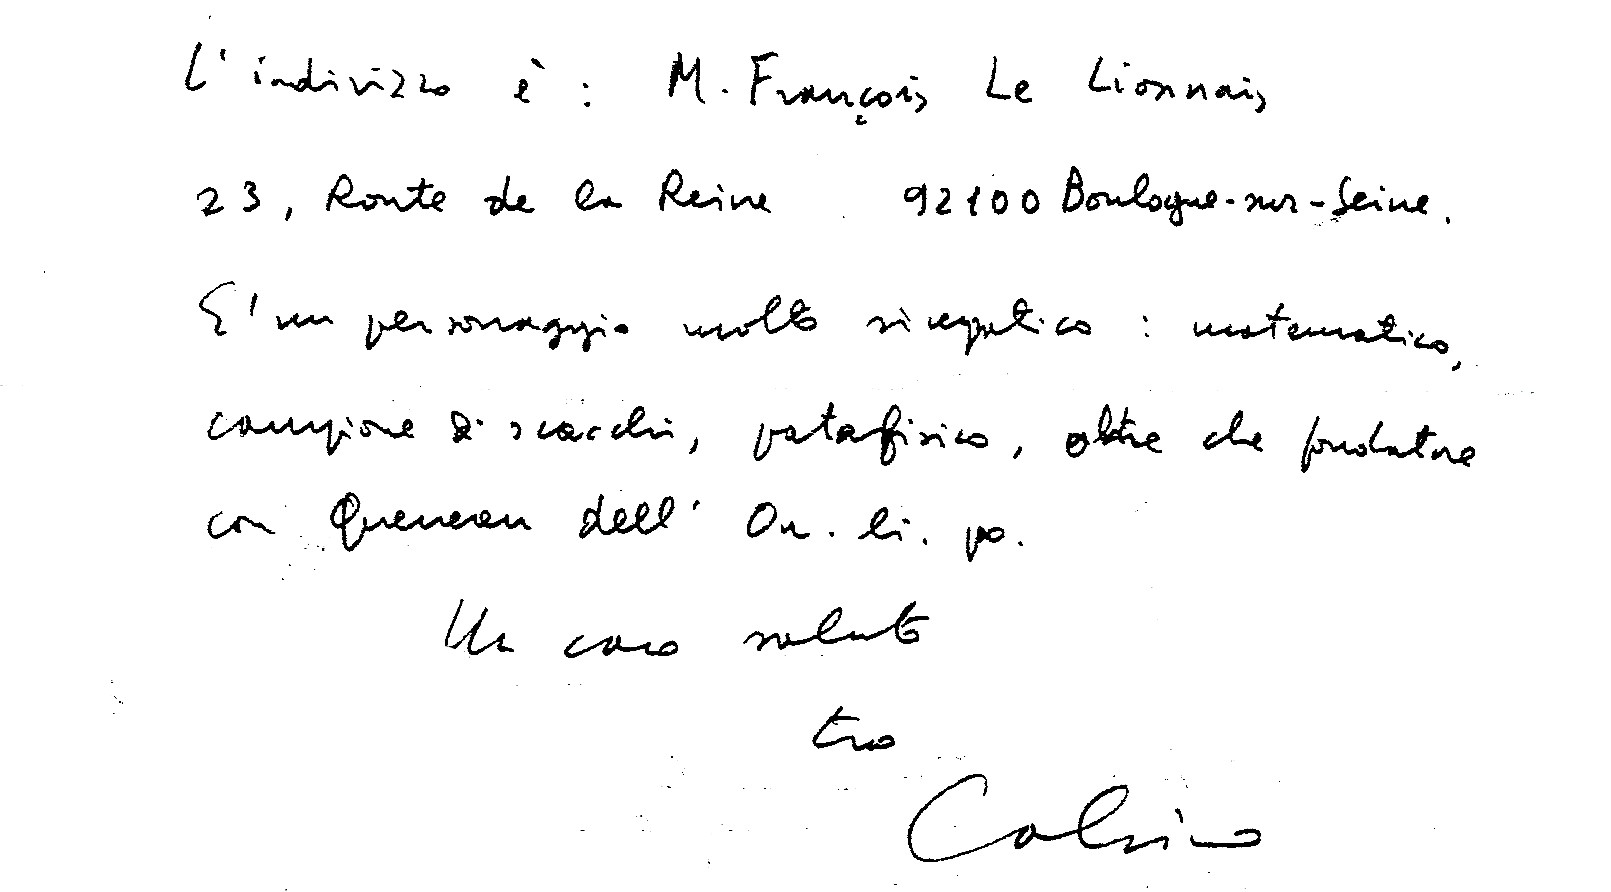 L'indirizzo è: M. François Le Lionnais
23, Route de la Reine 92100 Boulogne-sur-Seine.
E' un personaggio molto simpatico: matematico,
campione di scacchi, patafisico, oltre che fondatore
con Queneau dell' Ou. li. po.
Un caro saluto
tuo
Calvino